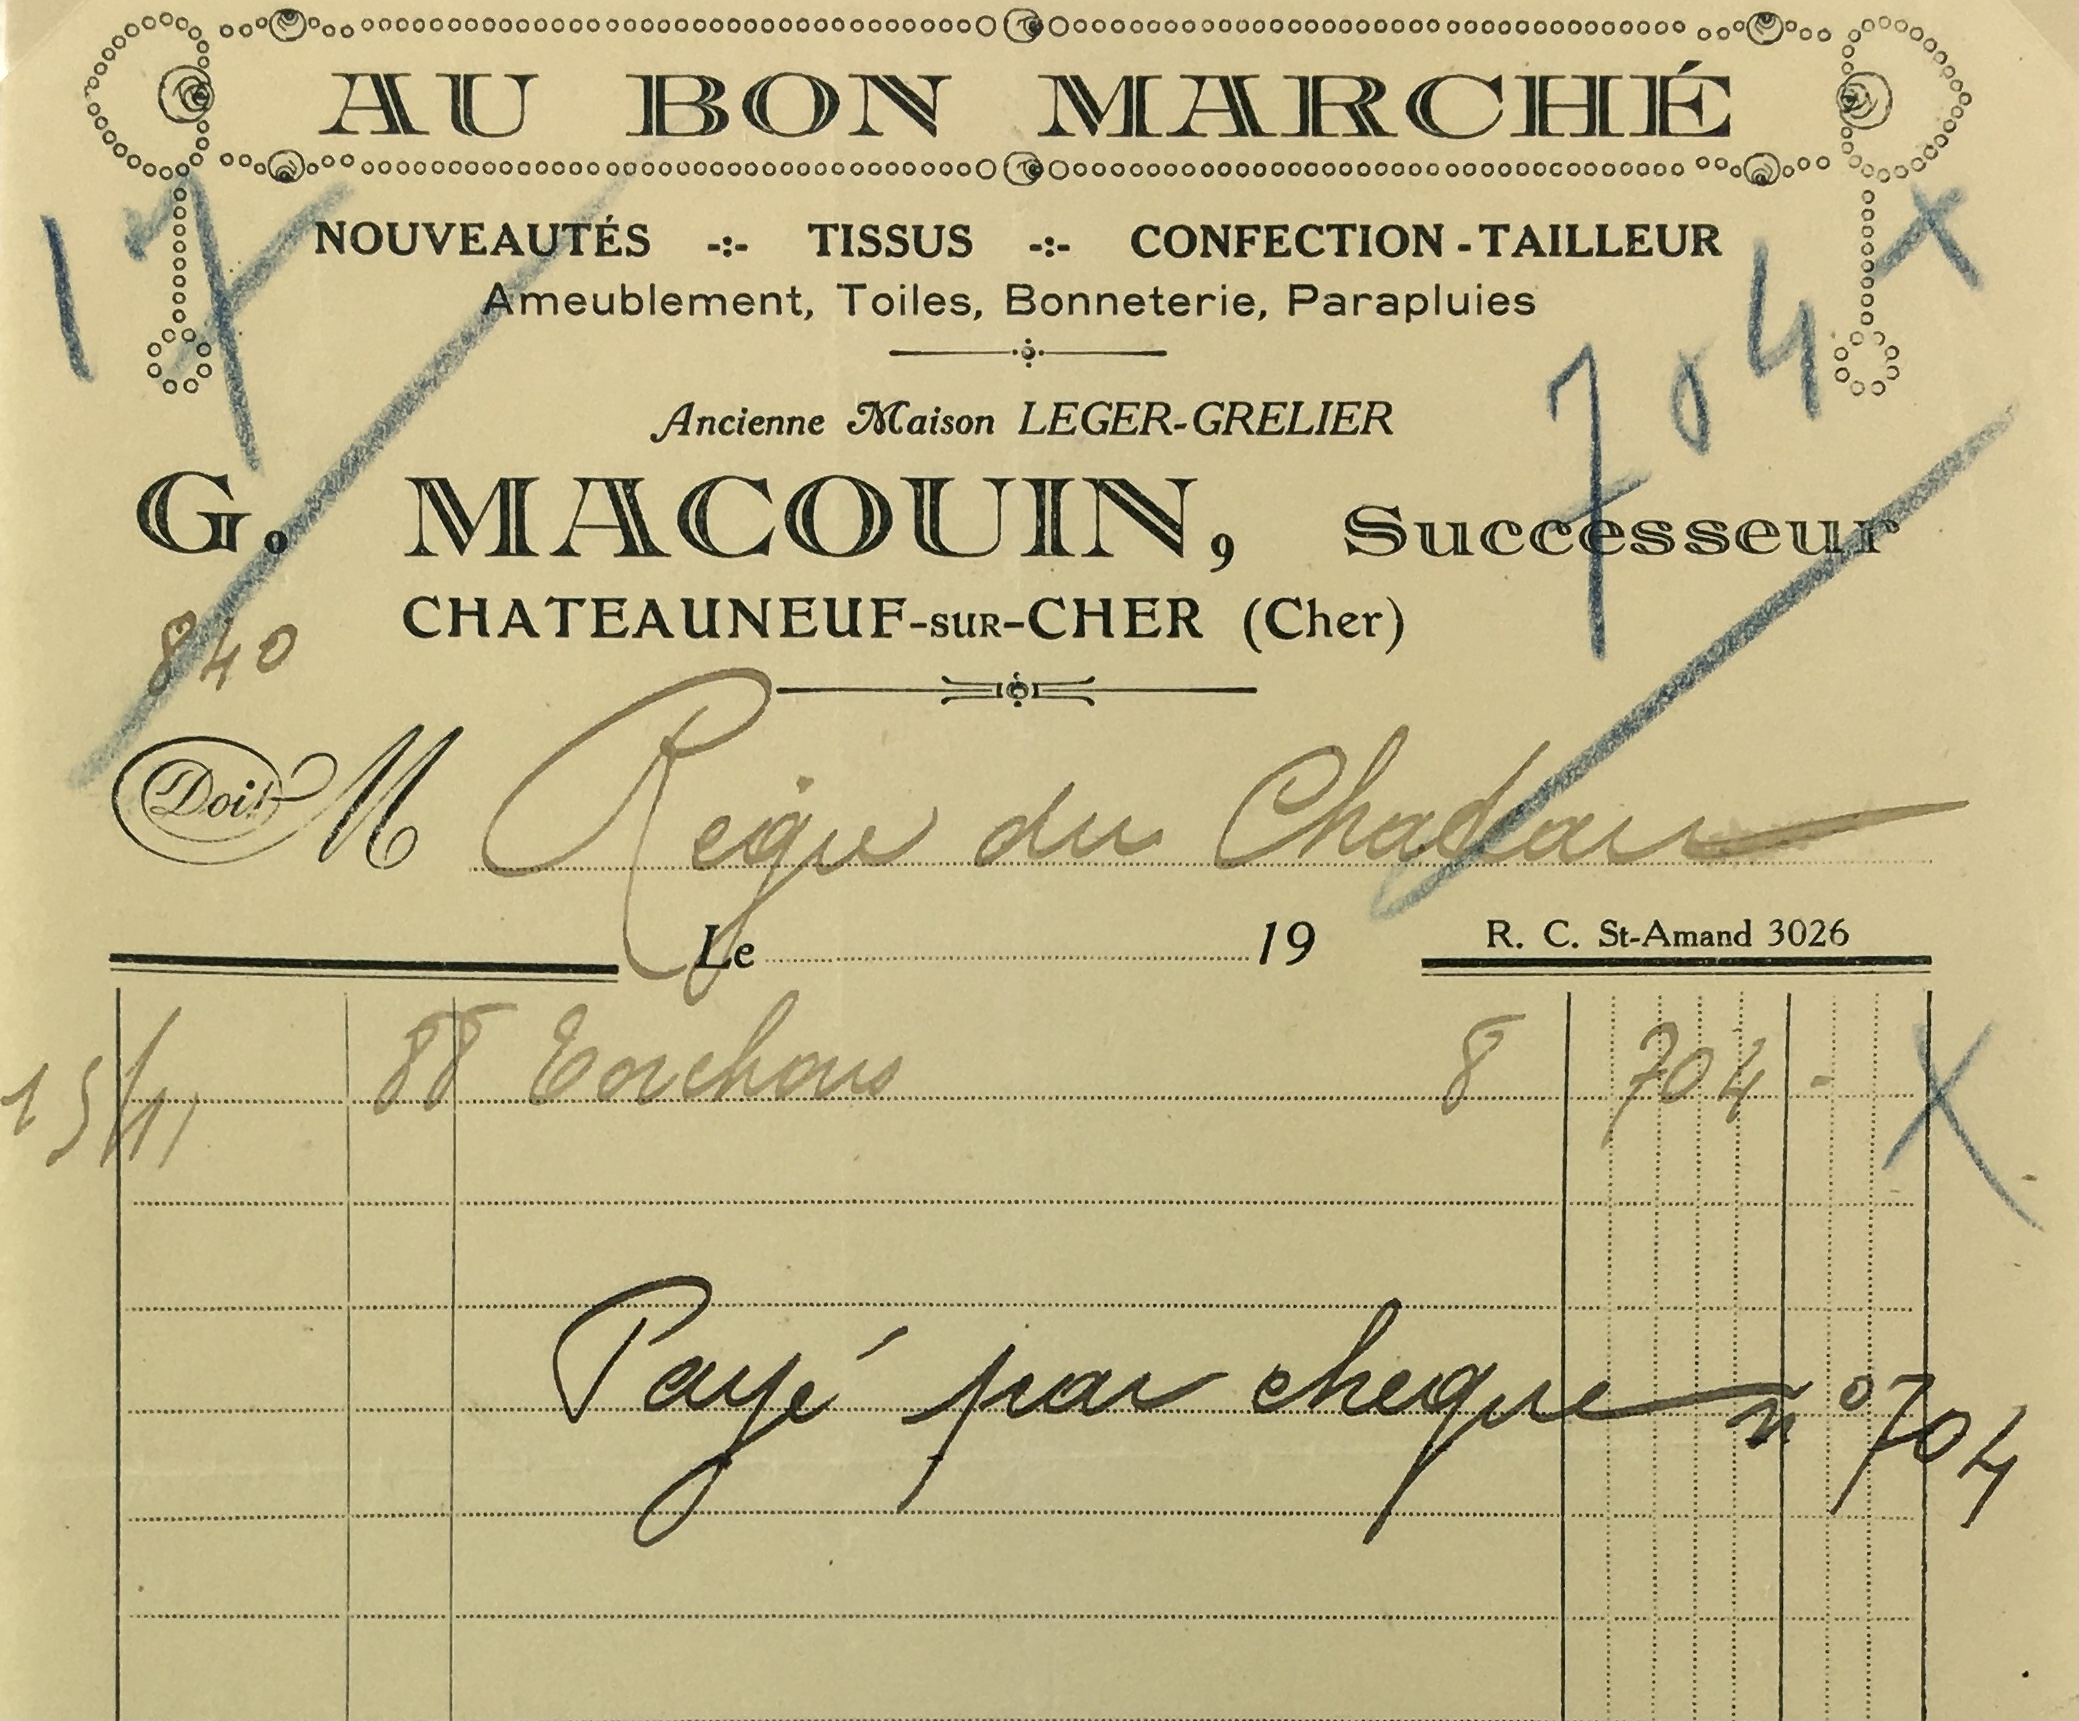 AU BON MARCHÉ
NOUVEAUTÉS -:- TISSUS -:- CONFECTION-TAILLEUR
Ameublement, Toiles, Bonneterie, Parapluies
17
704 x
Ancienne Maison LEGER-GRELIER
G. MACOUIN, Successeur
CHATEAUNEUF-SUR-CHER (Cher)
840
Doit M Regie du Chateau
Le 19
R. C. St-Amand 3026
15/11 88 Torchons 8 704 - X
Payé par cheque n° 704